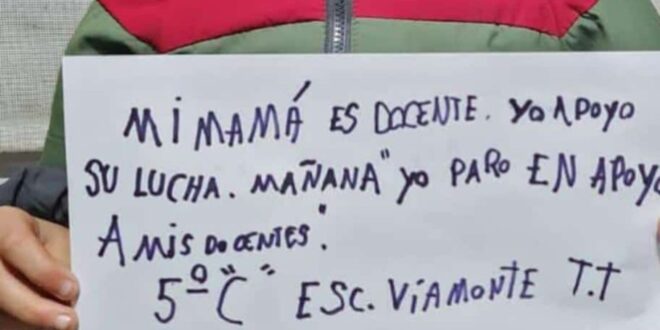 MI MAMÁ ES DOCENTE. YO APOYO
SU LUCHA. MAÑANA "YO PARO EN APOYO
A MIS DOCENTES".
5º "C" ESC. VIAMONTE T.T